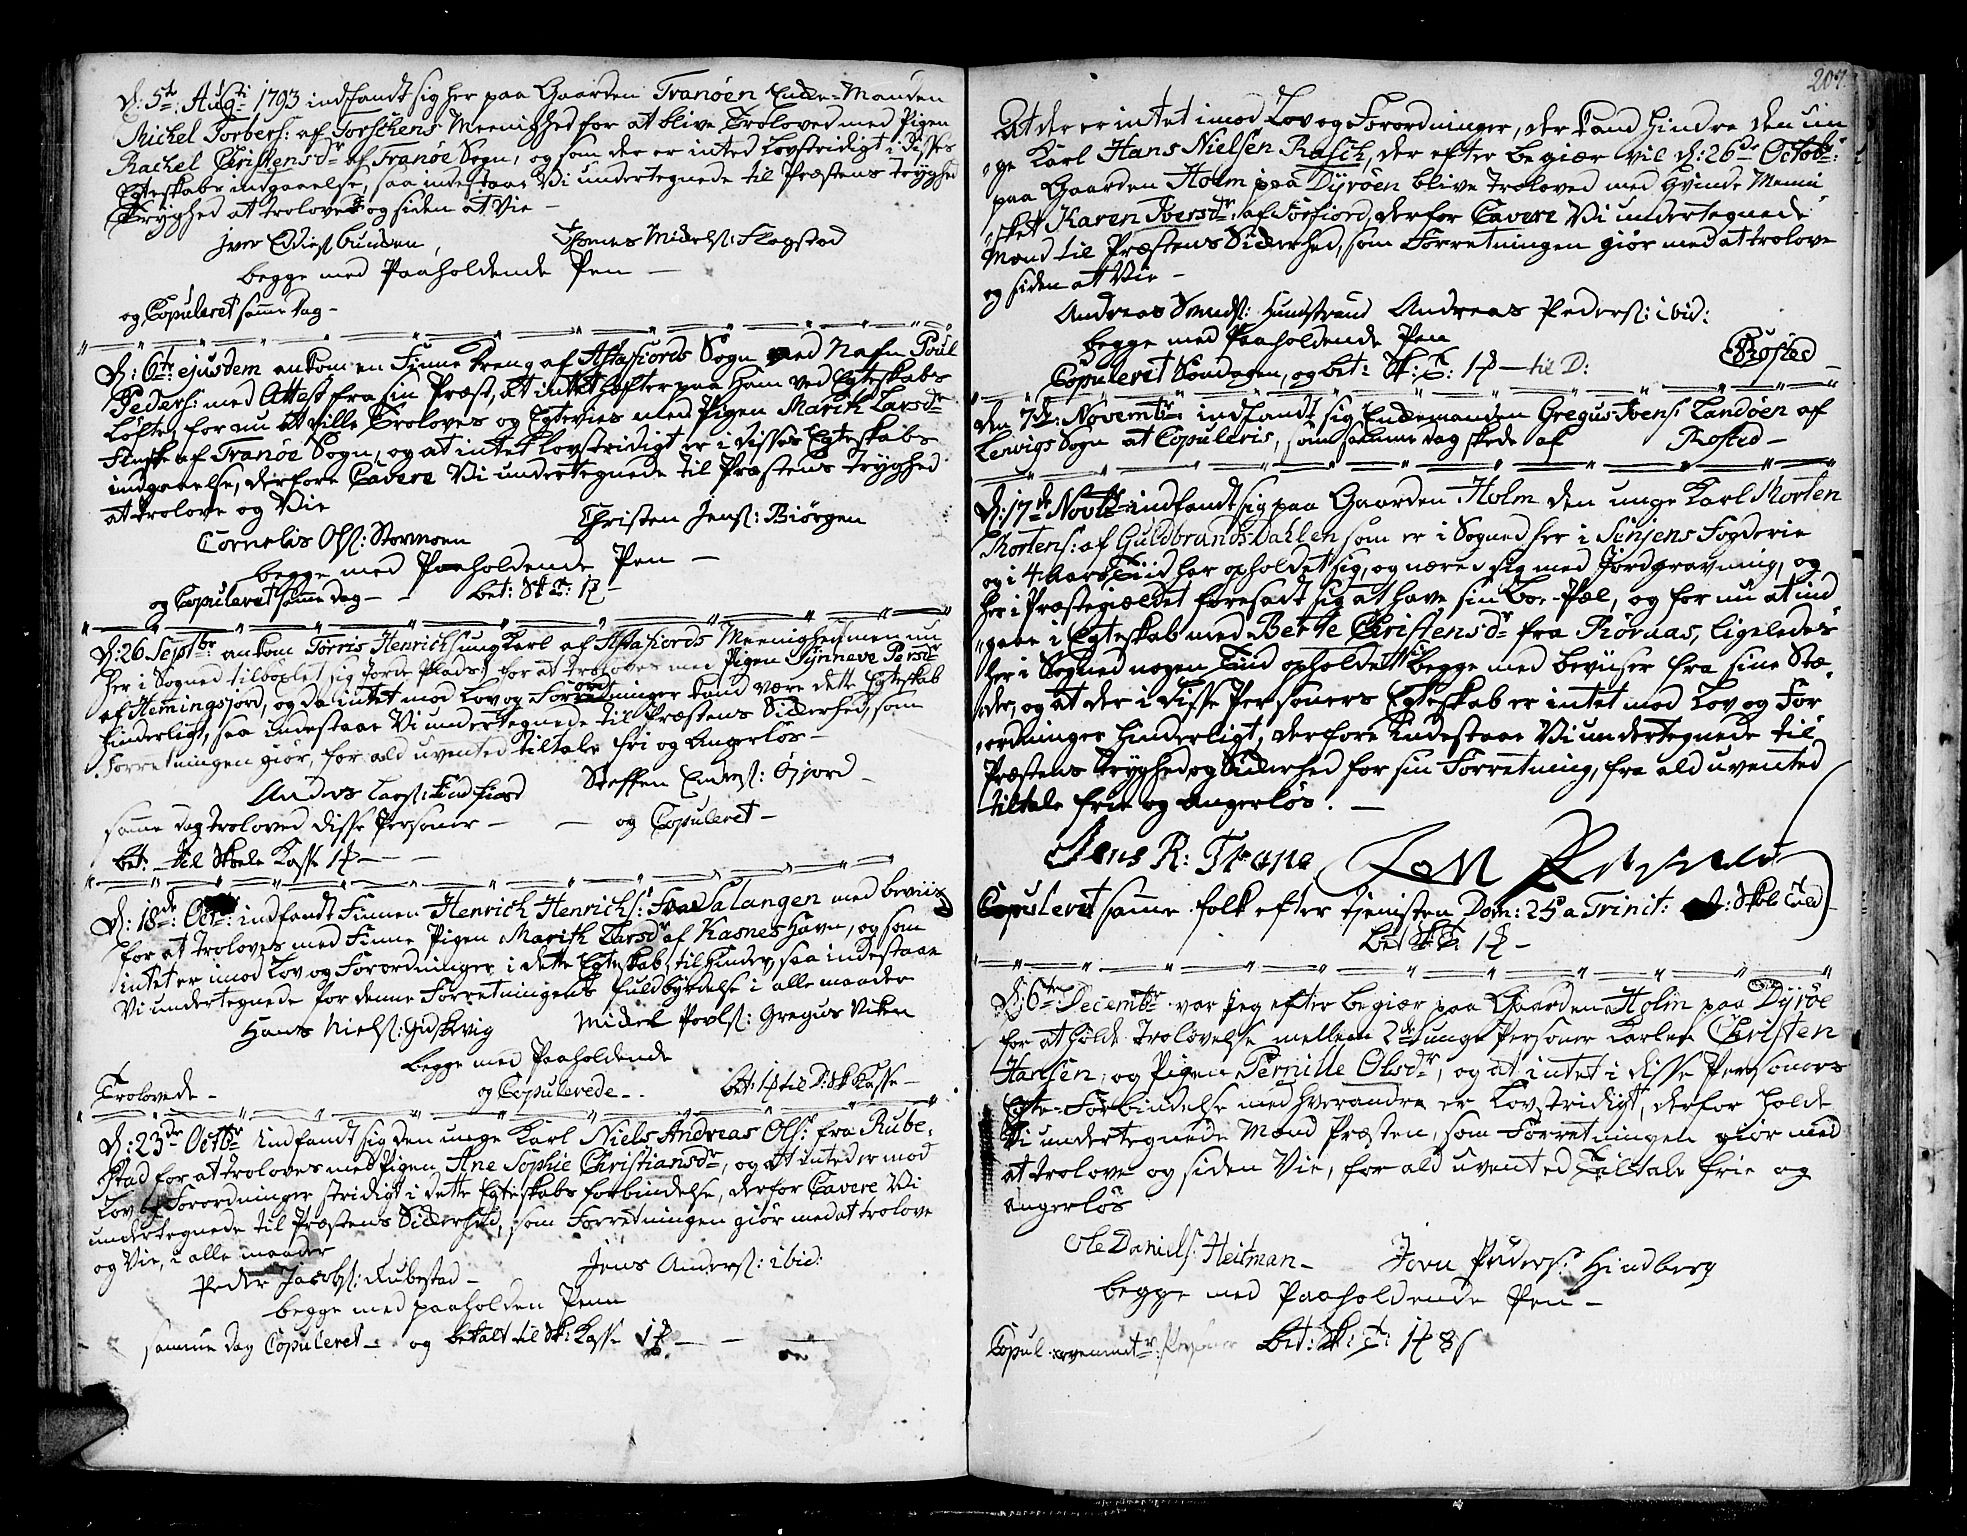 d: 5te Augti 1793 indfandt sig her paa Gaarden Tranöen Enke-Manden
Michel Torbers: af Torschens Meenighed for at blive Troloved med Pigen
Rachel Christensdr af Tranöe Sogn, og som der er inted Lovstridigt i Disses
Egteskabs indgaaelse, saa indestaar Vi undertegnede til Præstens Tryghed
Tryghed at trolove og siden at Vie —
Iver Thomes Mickels: Flagstad
begge med Paaholdende Pen —
og Copuleret samme dag —
D: 6te ejusdem ankom en Finne Dreng af Astafiords Sogn med Nafn Poul
Peders: med Attest fra sin Præst, at intet hefter paa Ham ved Egteskabs
Løfter, for nu at ville Troloves og Egtevies med Pigen Marith Larsdr
Finske af Tranöe Sogn, og at intet Lovstridigt er i Disses Egteskabs
indgaaelse, derfore Cavere Vi undertegnede til Præstens Tryghed
at trolove og Vie
Cornelius Ols: Stormoen Christen Jens: Biörgen
begge med Paaholdende Pen —
og Copuleret samme dag — bet: Sk: C: 1
D: 26 Septbr: ankom Torris Henrichs: ung Karl af Astafiords Meenighed men nu
her i Sogned tilböxlet sig Jorde Plads, for at troloves med Pigen Synneve Persdr
af Hemingsjord, og da intet mod Lov og Forordninger kand være dette Egteskab
hinderligt, saa indestaar Vi undertegnede til Præstens Sickerhed, som
Forretningen giör, for ald uvented tiltale fri og Angerlös —
Anders Lars: Findfiord Steffen Enders: Gjord —
samme dag troloved disse Personer — og Copuleret —
bet: til Skole Kasse 1
D: 18de Octr: indfandt Finnen Henrich Henrichs: fra Salangen med beviis
for at troloves med Finne Pigen Marith Larsdr af Kasnes Havn, og som
intet er imod Lov og Forordninger i dette Egteskab til hinder, saa indestaar
Vi undertegnede for denne Forretningens fuldbyrdelse i alle maader
Hans Niels: Gidskevig Mickel Povls: Gregus Viken
begge med Paaholdende
Trolovede — og Copulerede — bet: 1 til D: Sk Kasse —
D: 23de Octbr indfandt sig den unge Karl Niels Andreas Ols: fra Rube-
stad for at troloves med Pigen Ane Sophie Christiansdr, og at inted er mod
Lov og Forordninger stridigt i dette Egteskabs forbindelse, derfor Cavere Vi
undertegnede til Præstens Sickerhed, som Forretningen giör med at trolove
og Vie, i alle maader
Peder Jacobs: Rubestad — Jens Anders: ibid:
begge med paaholden Penn
samme dag Copuleret — og betalt til Sk: Kasse 1
207.
At der er intet imod Lov og Forordninger, der kand hindre den un
"ge Karl Hans Nielsen Rasch, der efter begiær vil d: 26de Octobr:
paa Gaarden Holm paa Dyröen blive troloved med Qvinde Menni
"sket Karen Iversdr af Sörfiord, derfor Cavere Vi undertegnede
Mænd til Præstens Sickerhed, som Forretningen giör med at trolove
og siden at Vie —
Andreas Hundstrand Andreas Peders: ibid:
begge med Paaholdende Pen
Copuleret Søndagen, og bet: Sk: C: 1 — til D:
den 7de Novembr: indfandt sig Enckemanden Gregus Ivens: Landöen af
Lenvigs Sogn at Copuleris, som samme dag skede af
D: 17de Novbr indfandt sig paa Gaarden Holm den unge Karl Morten
Mortens: af Guldbrands Dahlen som er i Sogned her i Senjens Fogderie
og i 4 Aars Tiid har opholdet sig, og næred sig med Jordgravning, og
her i Præstegiældet foresadt sig at have sin Boe-Pæl, og for nu at ind
"gaae i Egteskab med Berte Christensdr fra Röraas, ligeledes
her i Sogned nogen Tiid opholdt begge med beviiser fra sine Stæ
"der, og at der i disse Personers Egteskab er intet mod Lov og For
"ordninger hinderligt, derfore Indestaar Vi undertegnede til
Præstens Tryghed og Sickerhed for sin Forretning, fra ald uvented
tiltale frie og Angerlös. —
Jens R: Trapa
Copuleret samme folk efter tjenisten Dom: 25 a Trinit:
bet Sk C: 1 —
D: 6te Decembr var jeg efter begiær paa Gaarden Holm paa Dyröe
for at holde Trolovelse mellem 2de unge Personer Karlen Christen
Hansen, og Pigen Pernille Olsdr, og at intet i disse Personers
Egte-Forbindelse med hverandre er Lovstridigt, derfor holde
Vi undertegnede Mænd Præsten, som Forretningen giör med
at trolove og siden Vie, for ald uvented Tiltale frie og
Angerlös
Ole Daniels: Heitman — Jörn Peders: Hindberg
begge med Paaholdende Pen —
Copul. bet: Sk: C: 1 8